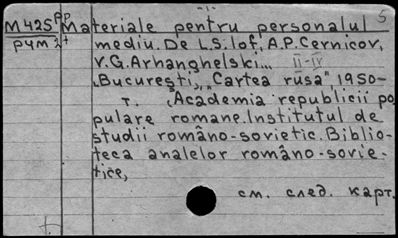 -1-
5
М 425 рр Materiale pentru personalul
рчм 2+ mediu. De L.S. Iof, A.P. Cernicov,
V.G. Arhanghelski... II-IV
București, "Cartea rusa", 1950-
т. (Academia republicii po
pulare romane. Institutul de
studii româno-sovietic. Biblio-
teca analelor româno-sovie-
tice,
см. след. карт.